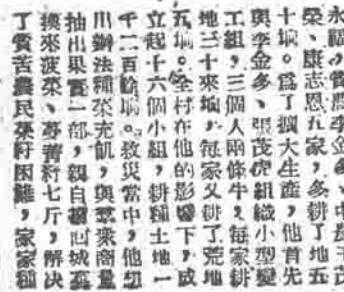 永福,貧農李金多、中農王茂
榮、康志恩九家,多耕了地五
十垧。爲了擴大生產,他首先
與李金多、張茂虎組織小型變
工組,三個人兩條牛,每家耕
地三十來垧,每家又耕了荒地
五垧。全村在他的影響下,成
立起十六個小組,耕種土地一
千二百餘垧。救災當中,他想
出辦法種菜充飢,與羣衆商量
抽出果實一部,親自到回城
換來菠菜、蔓菁籽七斤,解決
了貧苦農民菜籽困難,家家種